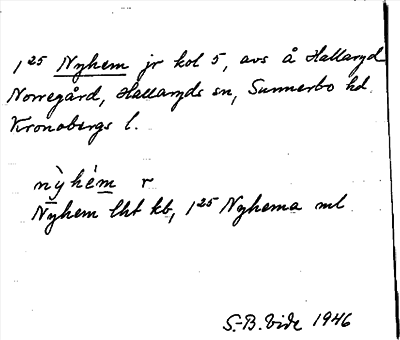 1²⁵ Nyhem jr kol 5, avs å Hallaryd
Norregård, Hallaryds sn, Sunnerbo hd.
Kronobergs l.
nỳhém r
Nyhem lht kb, 1²⁵ Nyhema ml
S.-B. Vide 1946